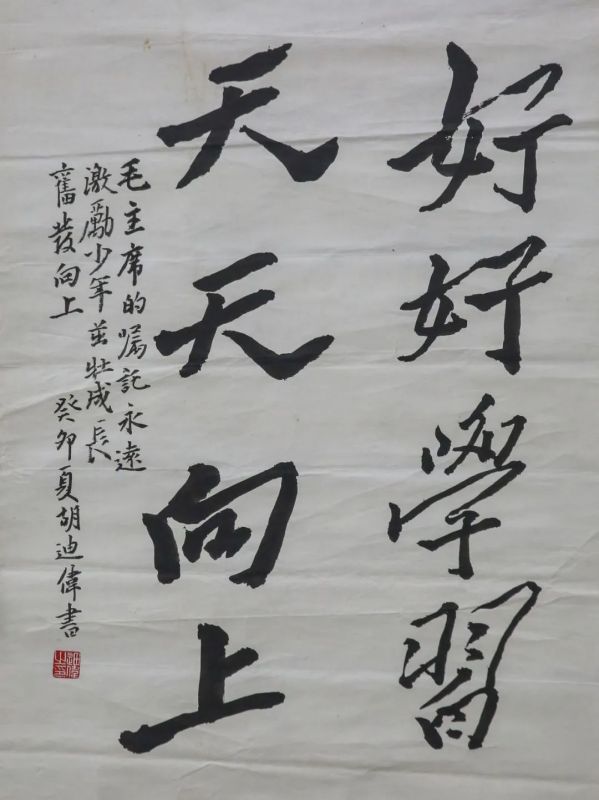 好好學習
天天向上
毛主席的嘱託永遠
激勵少年茁壯成長
奮發向上
癸卯夏胡迪偉書